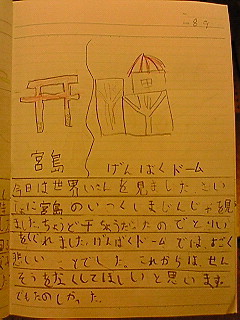 8.9
宮島 げんばくドーム
今日は世界いさんを見ました さい
しょに宮島のいつくしまじんじゃを見
ました。ちょうど干ちょうだったのでとりい
をくぐれました。げんばくドームではよごく
悲しい ことでした。これからはせん
そうをなくしてほしい と思います。
でもたのしかった。